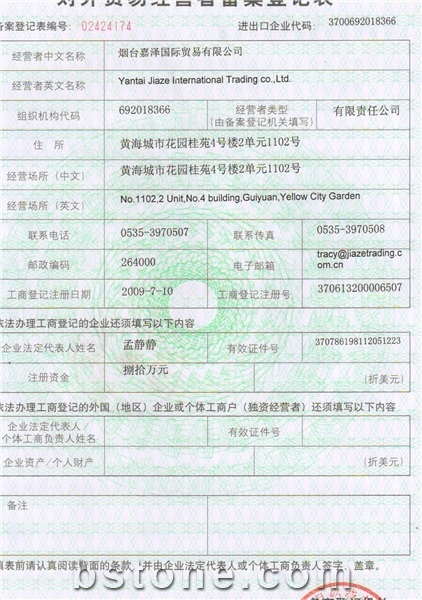 对外贸易经营者备案登记表
备案登记表编号: 02424174 进出口企业代码: 3700692018366
经营者中文名称 烟台嘉泽国际贸易有限公司
经营者英文名称 Yantai Jiaze International Trading co.,Ltd.
组织机构代码 692018366 经营者类型 有限责任公司
(由备案登记机关填写)
住 所 黄海城市花园桂苑4号楼2单元1102号
经营场所(中文) 黄海城市花园桂苑4号楼2单元1102号
经营场所(英文) No.1102,2 Unit,No.4 building,Guiyuan,Yellow City Garden
联系电话 0535-3970507 联系传真 0535-3970508
邮政编码 264000 电子邮箱 tracy@jiazetrading.c
om.cn
工商登记注册日期 2009-7-10 工商登记注册号 370613200006507
依法办理工商登记的企业还须填写以下内容
企业法定代表人姓名 孟静静 有效证件号 370786198112051223
注册资金 捌拾万元 (折美元)
依法办理工商登记的外国(地区)企业或个体工商户(独资经营者)还须填写以下内容
企业法定代表人/
个体工商负责人姓名 有效证件号
企业资产/个人财产 (折美元)
备注
填表前请认真阅读背面的条款,并由企业法定代表人或个体工商负责人签字、盖章。
bstone.com